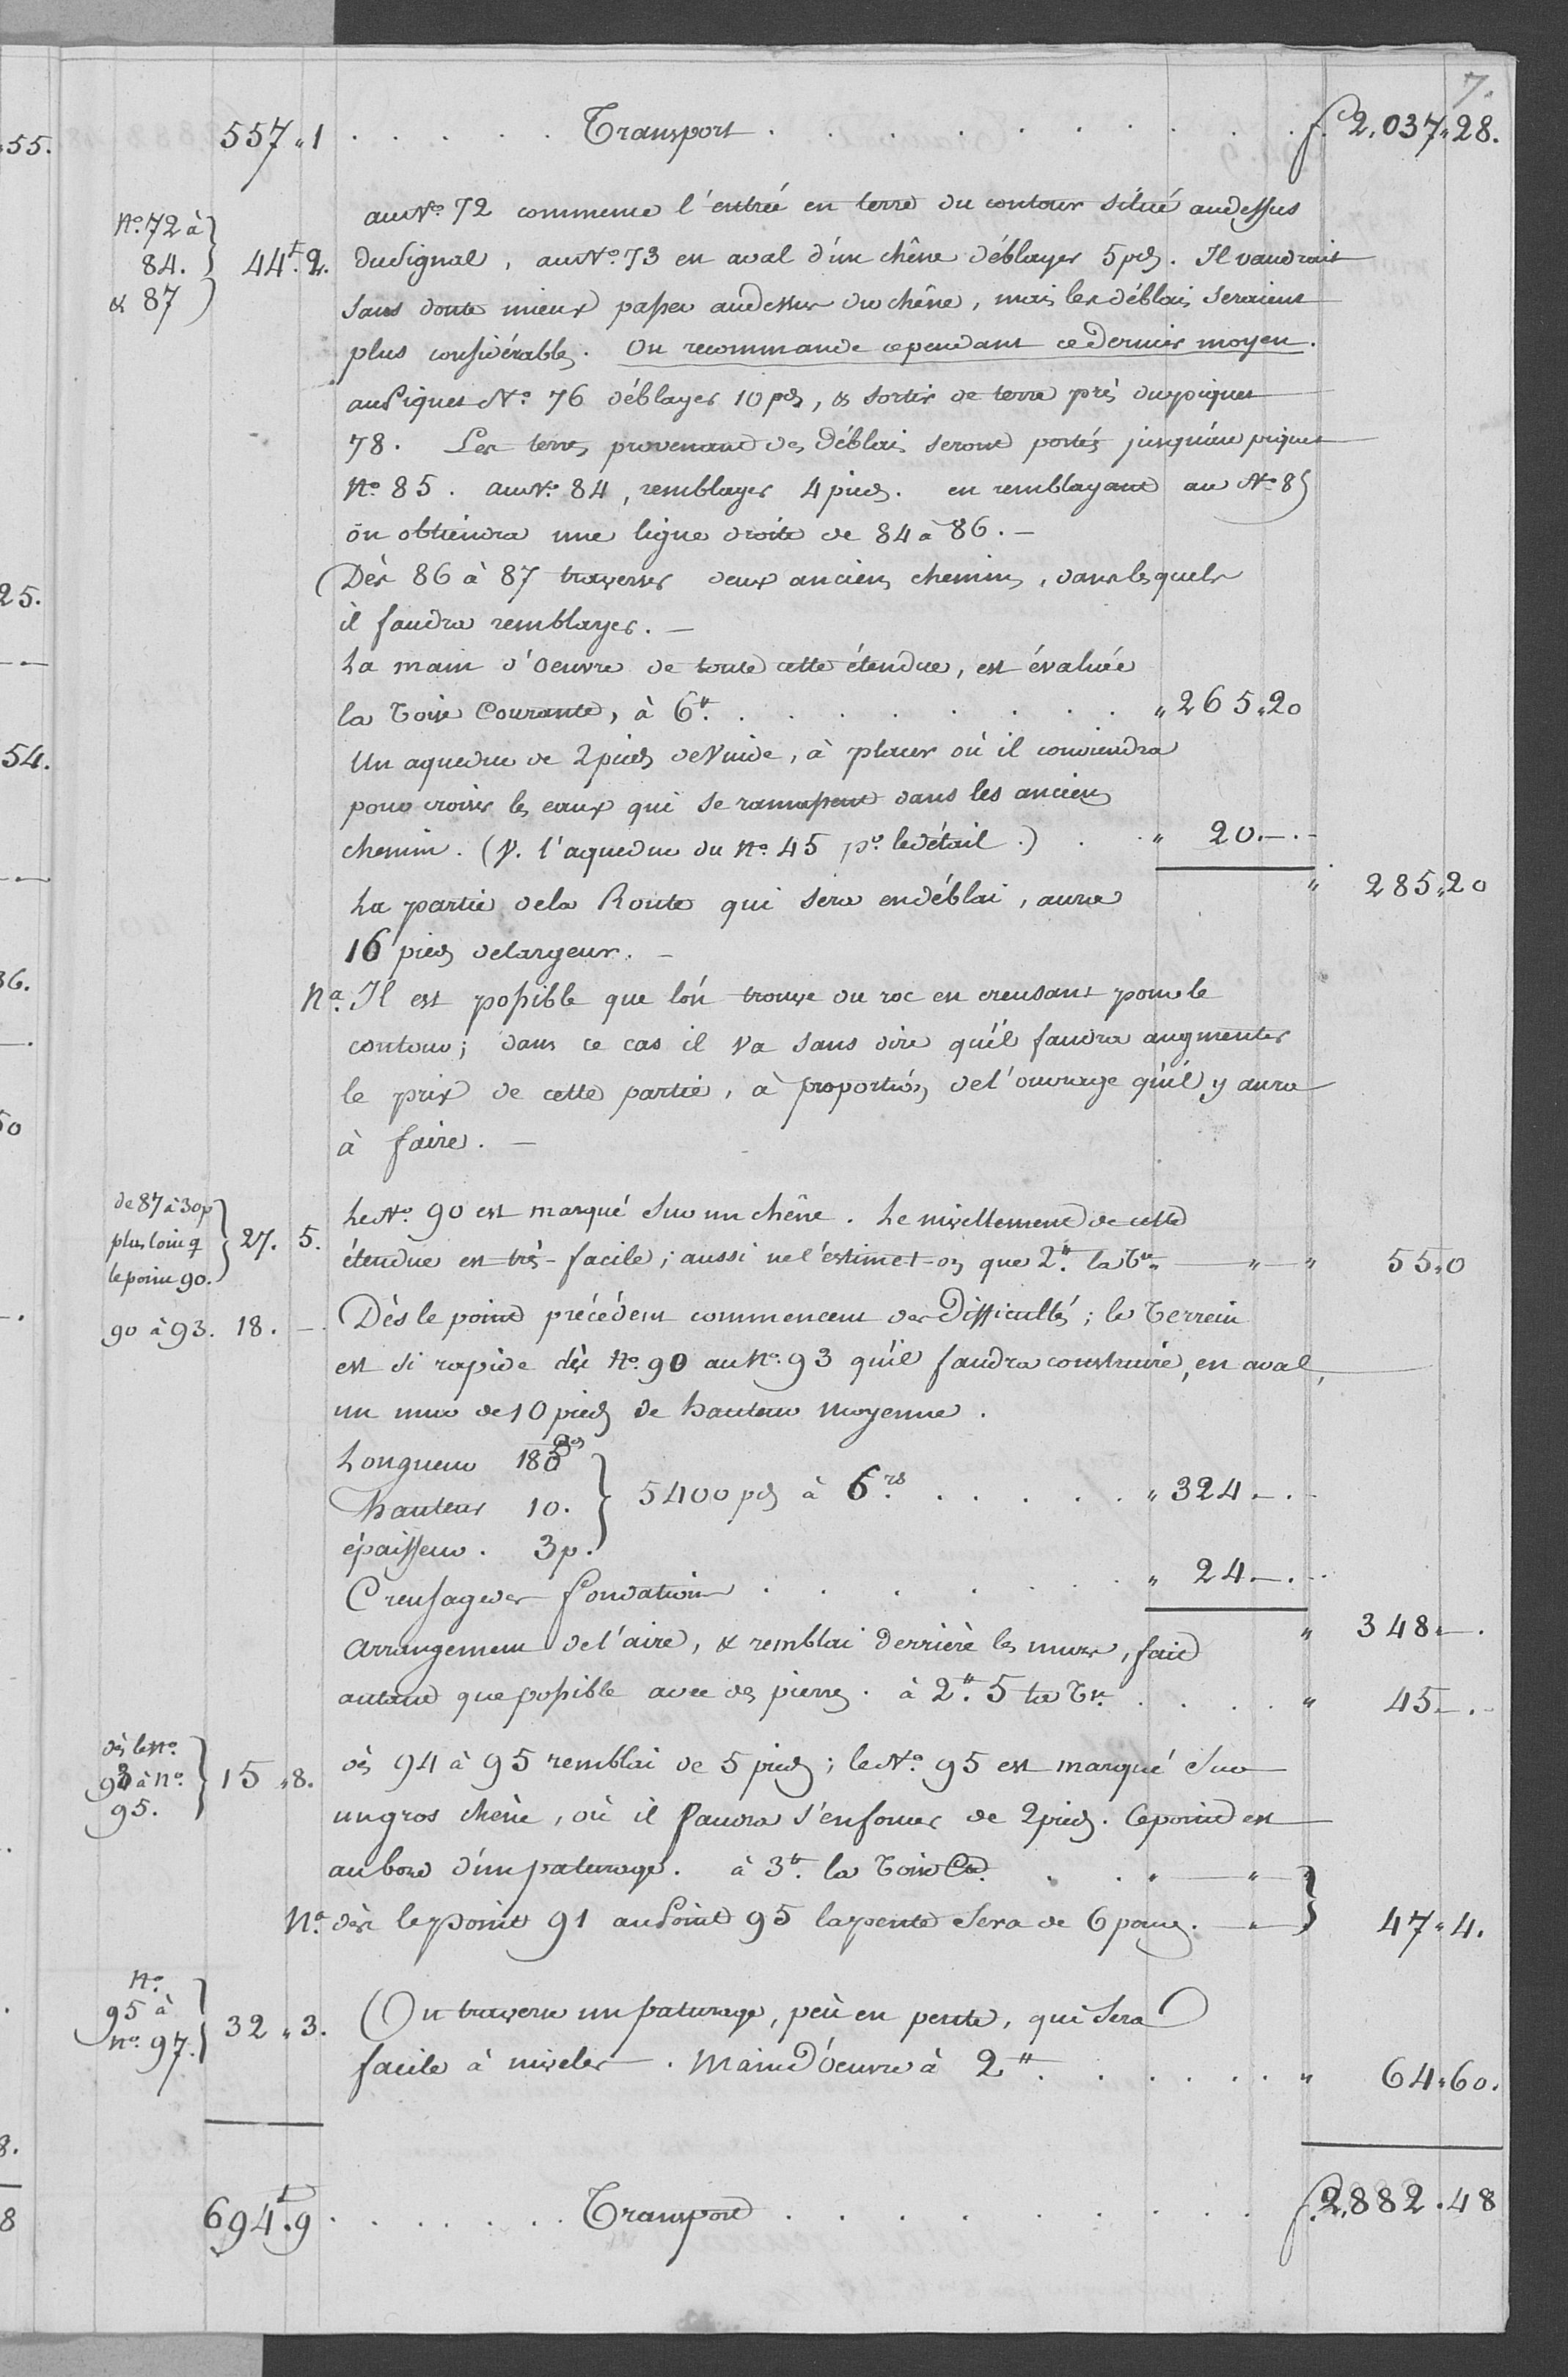 7.
557 " 1 . . . . . Transport . . . . . . . . . f. 2,037 " 28.
N.º 72 à
84.
& 87
44t. 2.
au N.º 72 commence l'entrée en terre du contour situé audessus
du Signal, au N.º 73 en aval d'un chêne déblayer 5 pds. Il vaudrait
sans doute mieux passer audessus du chêne, mais les déblais seraient
plus considérables. On recommande cependant ce dernier moyen.
au Piquet N.º 76 déblayer 10 pds, & sortir de terre près du piquet
78. Les terres provenant des déblais seront portés jusqu'au piquet
N.º 85. au N.º 84, remblayer 4 pieds. en remblayant au N.º 85
on obtiendra une ligne droite de 84 à 86. —
Dès 86 à 87 traverser deux anciens chemins, dans lesquels
il faudra remblayer. —
La main d'Oeuvre de toute cette étendue, est évaluée
la Toise Courante, à 6 #. . . . . . . . . " 265 " 20
Un aqueduc de 2 pieds de Vuide, à placer où il conviendra
pour croiser les eaux qui se ramassent dans les anciens
chemin. (V. l'aqueduc du N.º 45 p.º le détail.) . . " 20. — . —
" 285 " 20
La partie de la Route qui sera en déblai, aura
16 pieds de largeur. —
N.ª Il est possible que l'on trouve du roc en creusant pour le
contour; dans ce cas il va sans dire qu'il faudra augmenter
le prix de cette partie, à proportion de l'ouvrage qu'il y aura
à faire. —
de 87 à 30 p
plus loin q
le point 90.
27. 5.
Le N.º 90 est marqué sur un chêne. Le nivellement de cette
étendue est très-facile; aussi ne l'estime t-on que 2 #. la T.se — " — " 55 " 0
90 à 93. 18. —
Dès le point précédent commencent des Difficultés; le Terrein
est si rapide dès N.º 90 au N.º 93 qu'il faudra construire, en aval,
un mur de 10 pieds de hauteur moyenne.
Longueur 180 pds
hauteur 10.
épaisseur. 3 p.
5400 pds à 6 rs. . . . . . " 324 — . —
Creusage des fondation . . . . . . " 24 — . —
" 348 " — .
Arrangement de l'aire, & remblai derrière les murs, fait
autant que possible avec des pierres. à 2 #. 5 la T.se . . . . " 45 — . —
dès le N.º
93 à N.º
95.
15 " 8.
dès 94 à 95 remblai de 5 pieds; le N.º 95 est marqué sur
un gros chêne, où il faudra s'enfoncer de 2 pieds. Ce point est
au bord d'un paturage. à 3 #. la Toise C.te . . " — " — "
N.ª dès le point 91 au Point 95 la pente sera de 6 pouces. — " 47 " 4.
N.º
95 à
N.º 97.
32 " 3.
On traverse un paturage, peu en pente, qui sera
facile à niveler —. Main d'Oeuvre à 2 # . . . . . . " 64 " 60.
694t. 9 . . . . . . . Transport . . . . . . . . . f. 2,882 . 48
55.
25.
54.
36.
50
8.
8